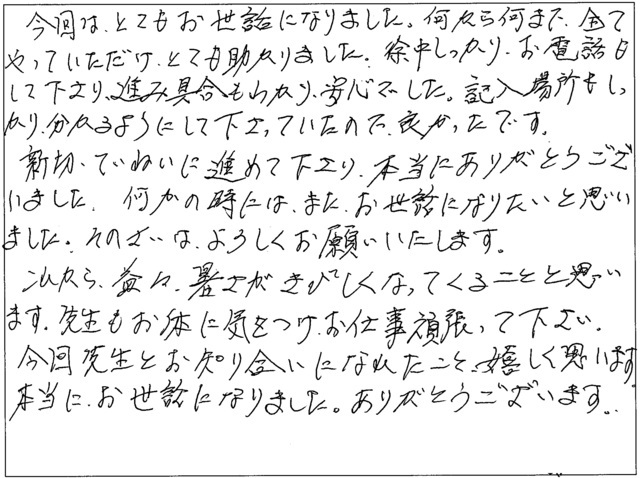 今回は、とてもお世話になりました。何から何まで、全て
やっていただけ、とても助かりました。途中しっかり、お電話も
して下さり、進み具合もわかり、安心でした。記入場所もしっ
かり、分かるようにして下さっていたので、良かったです。
親切、ていねいに進めて下さり、本当にありがとうござ
いました。何かの時には、また、お世話になりたいと思い
ました。そのさいは、よろしくお願いいたします。
これから、益々、暑さがきびしくなってくることと思い
ます。先生もお体に気をつけ、お仕事頑張って下さい。
今回先生とお知り合いになれたこと、嬉しく思います。
本当に、お世話になりました。ありがとうございます。